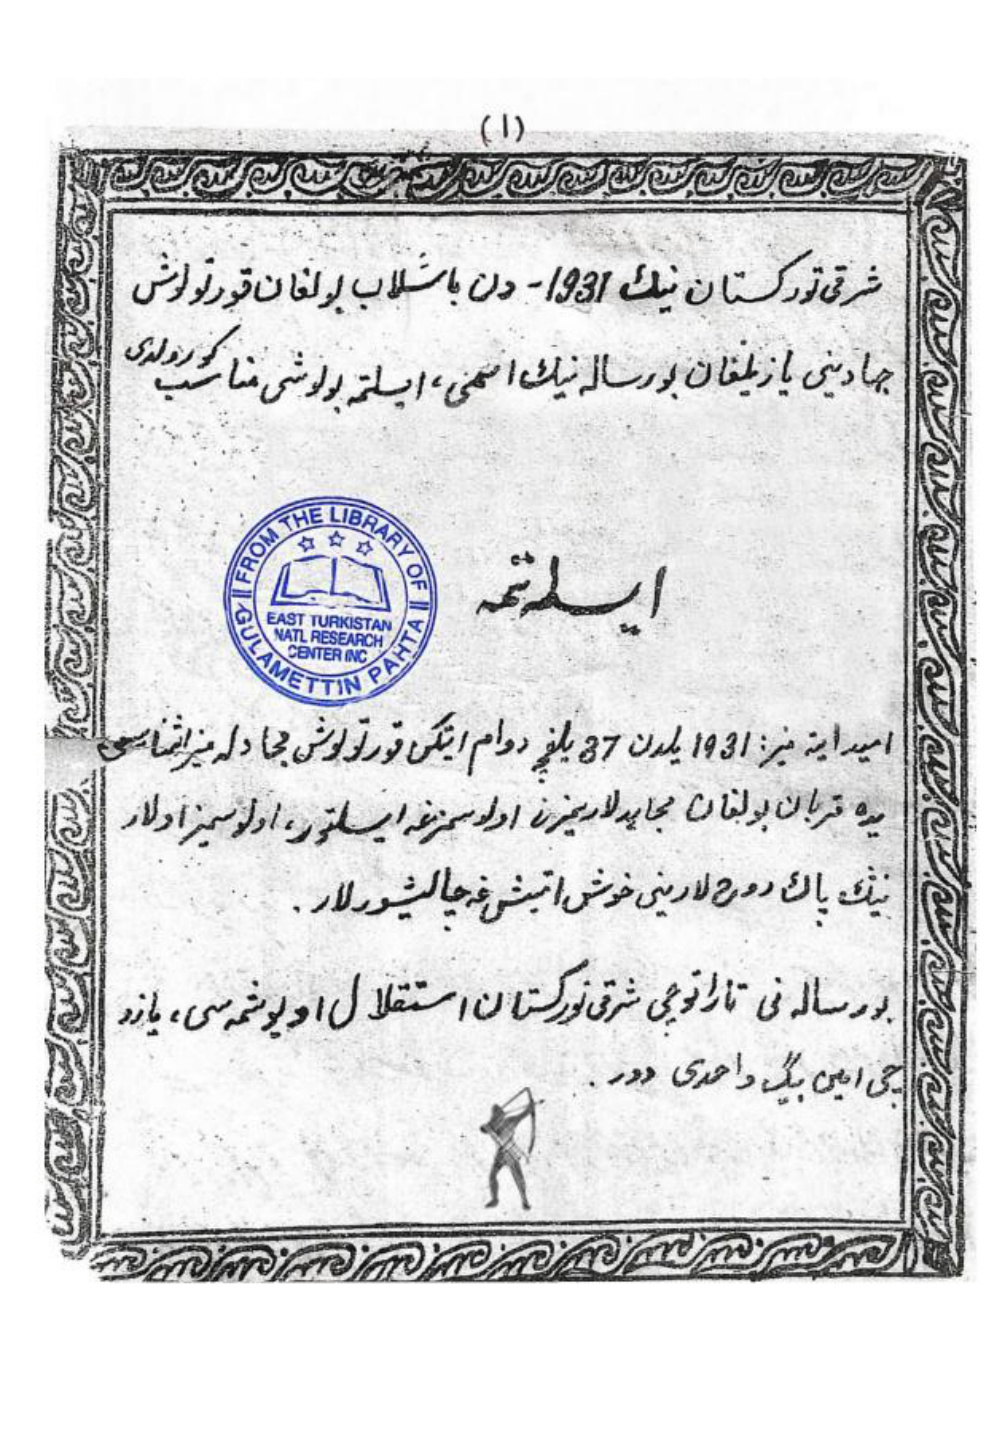 (١)
شرقی تورکستان نیڭ 1931- دن باشلاب بولغان قورتولوش
جهادینی یازیلغان بو رساله نیڭ اسمی، ایسلتمه بولوشی مناسب کورولدی
FROM THE LIBRARY OF
EAST TURKISTAN
NATL RESEARCH
CENTER INC
GULAMETTIN PAHTA
ایسلتمه
1931 یلدن 37 یلغچه دوام ایتکن قورتولوش مجادله میز
ده قربان بولغان مجاهدلاریمیزنی اولوسمیزغه ایسلتور، اولوسمیز اولار
نیڭ پاك روح لارینی خوش ایتیش غه چالیشورلار.
بو رساله نی تاراتوچی شرقی تورکستان استقلال اویوشمه سی، یازو
چی امین بیگ واحدی دور.